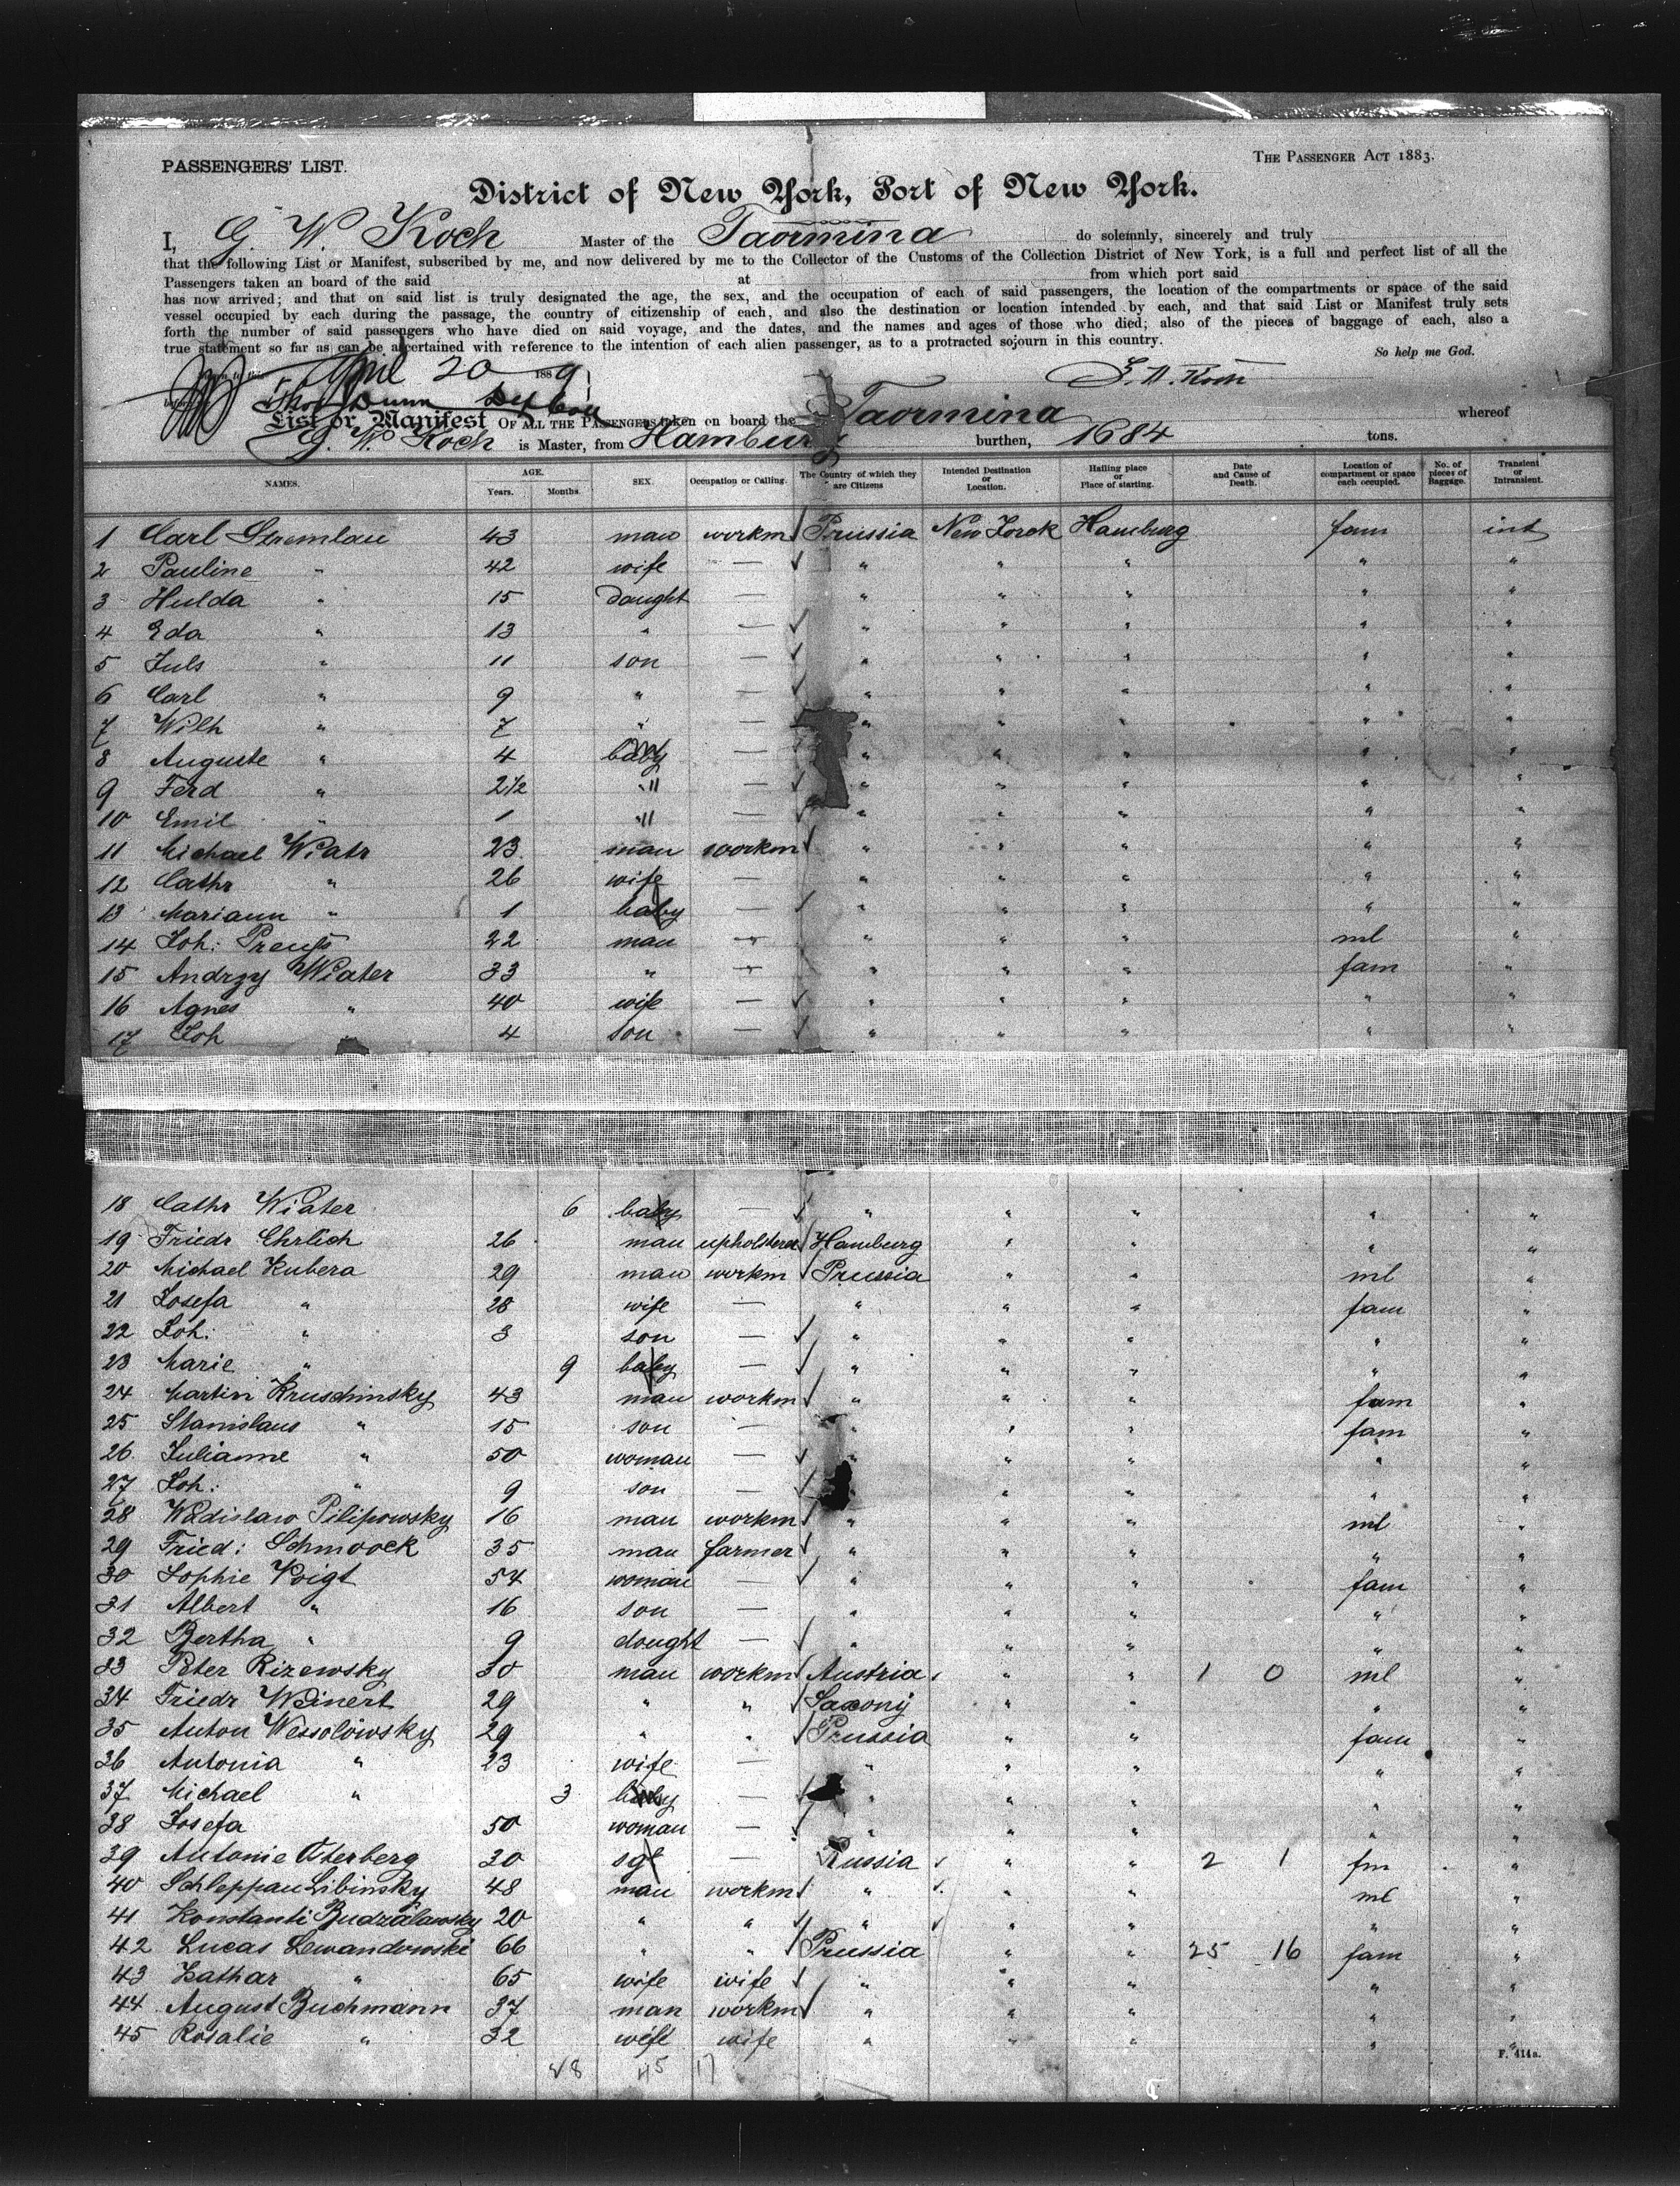 PASSENGERS' LIST.
THE PASSENGER ACT 1883.
District of New York, Port of New York.
I, G. W. Koch Master of the Taormina do solemnly, sincerely and truly
that the following List or Manifest, subscribed by me, and now delivered by me to the Collector of the Customs of the Collection District of New York, is a full and perfect list of all the
Passengers taken an board of the said at from which port said
has now arrived; and that on said list is truly designated the age, the sex, and the occupation of each of said passengers, the location of the compartments or space of the said
vessel occupied by each during the passage, the country of citizenship of each, and also the destination or location intended by each, and that said List or Manifest truly sets
forth the number of said passengers who have died on said voyage, and the dates, and the names and ages of those who died; also of the pieces of baggage of each, also a
true statement so far as can be ascertained with reference to the intention of each alien passenger, as to a protracted sojourn in this country.
So help me God.
April 20 1889
List or Manifest OF ALL THE PASSENGERS taken on board the Taormina whereof
G. W. Koch is Master, from Hamburg burthen, 1684 tons.
NAMES. AGE. Years. Months. SEX. Occupation or Calling. The Country of which they are Citizens Intended Destination or Location. Hailing place or Place of starting. Date and Cause of Death. Location of compartment or space each occupied. No. of pieces of Baggage. Transient or Intransient.
1 Carl Stremlau 43 man workm Prussia New Jorck Hamburg fam int
2 Pauline " 42 wife — " " " " "
3 Hulda " 15 Daught — " " " " "
4 Eda " 13 " — " " " " "
5 Juls " 11 son — " " " " "
6 Carl " 9 " — " " " " "
7 Wilh " 7 " — " " " " "
8 Auguste " 4 baby — " " " " "
9 Ferd " 2½ " — " " " " "
10 Emil " 1 " — " " " " "
11 Michael Wiatr 23 man workm " " " " "
12 Cathr " 26 wife — " " " " "
13 Mariann " 1 baby — " " " " "
14 Joh: Preuß 22 man " " " " ml "
15 Andrzy Wiater 33 " " " " " fam "
16 Agnes " 40 wife — " " " " "
17 Joh " 4 son — " " " " "
18 Cathr Wiater 6 baby — " " " " "
19 Friedr Ehrlich 26 man upholsterer Hamburg " " " "
20 Michael Kubera 29 man workm Prussia " " ml "
21 Josefa " 28 wife — " " " fam "
22 Joh: " 3 son — " " " " "
23 Marie " 9 baby — " " " " "
24 Martin Kruschinsky 43 man workm " " " fam "
25 Stanislaus " 15 son — " " " fam "
26 Julianne " 50 woman — " " " " "
27 Joh: " 9 son — " " " " "
28 Wadislaw Pilipowsky 16 man workm " " " ml "
29 Fried: Schmoock 35 man farmer " " " " "
30 Sophie Voigt 54 woman — " " " fam "
31 Albert " 16 son — " " " " "
32 Bertha " 9 dought — " " " " "
33 Peter Rizewsky 30 man workm Austria " " 1 0 ml "
34 Friedr Weinert 29 " " Saxony " " " "
35 Anton Wessolowsky 29 " " Prussia " " fam "
36 Antonia " 23 wife — " " " " "
37 Michael " 3 baby — " " " " "
38 Josefa 50 woman — " " " " "
39 Antonie Oterberg 20 sgl — Russia " " 2 1 fm "
40 Schleppau Libinsky 48 man workm " " " ml "
41 Konstanti Budzalawsky 20 " " " " " " "
42 Lucas Lewandowski 66 " " Prussia " " 25 16 fam "
43 Kathar " 65 wife wife " " " " "
44 August Buchmann 37 man workm " " " " "
45 Rosalie " 32 wife wife " " " " "
45 17
F. 414a.